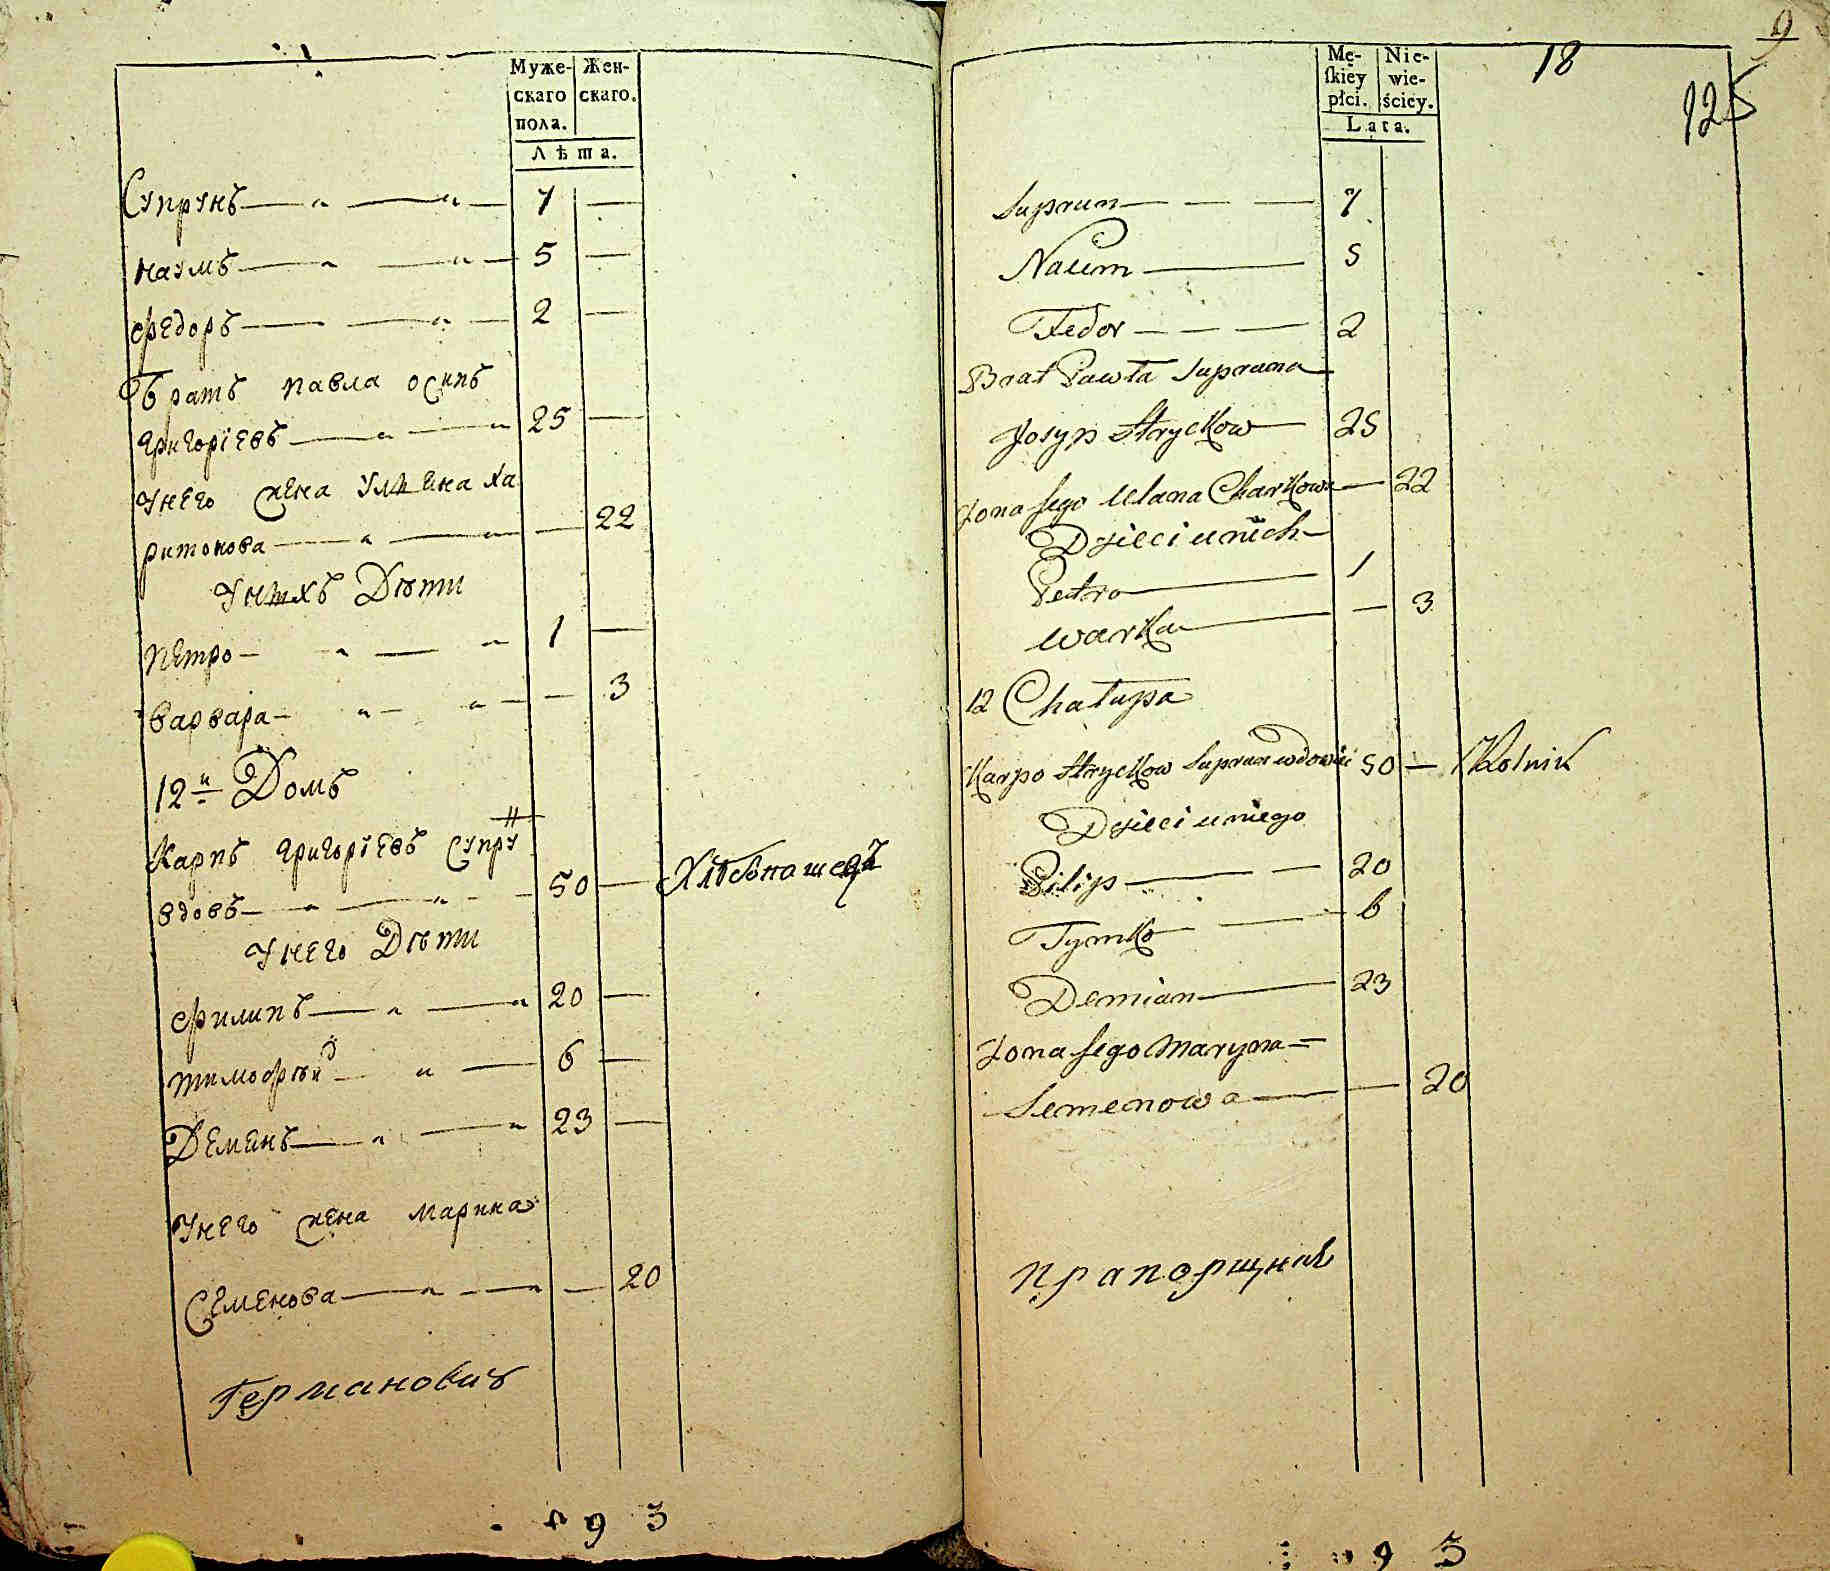 Муже- Жен-
скаго скаго.
пола.
Лѣта.
Супрунъ — „ — „ — 7 —
Наумъ — „ — „ — 5 —
Федоръ — — „ — 2 —
Братъ Павла Осипъ
Григоріевъ — „ — „ 25 —
Унего жена Улиена Ха
ритонова — „ — — 22
Унихъ Дѣти
Петро — „ — „ 1 —
Варвара — „ — „ — — 3
12й Домъ
Карпъ Григоріевъ Супру н
вдовъ — „ — „ — 50 — Хлѣбопашецъ
Унего Дѣти
Филипъ — „ — „ 20 —
Тимофѣй — „ — 6 —
Деменъ — „ — „ 23 —
Унего жена Марина
Семенова — „ — „ — 20
Германовичъ
93
9
18
125
Mę- Nie-
ſkiey wie-
płci. ściey.
Lata.
Suprun — — — 7
Naum — 5
Fedor — — — 2
Brat Pawła Supruna
Josyp Stryckow — 25
Żona Jego Ulana Charkowa — 22
Dzieci u nich —
Petro — 1
Warka — — 3
12 Chałupa
Karpo Stryckow Suprun wdowiec 50 — Rolnik
Dzieci u niego
Pilip — — 20
Tymko — 6
Demian — 23
Żona Jego Maryna —
Semenowa — — 20
Прапорщикъ
93